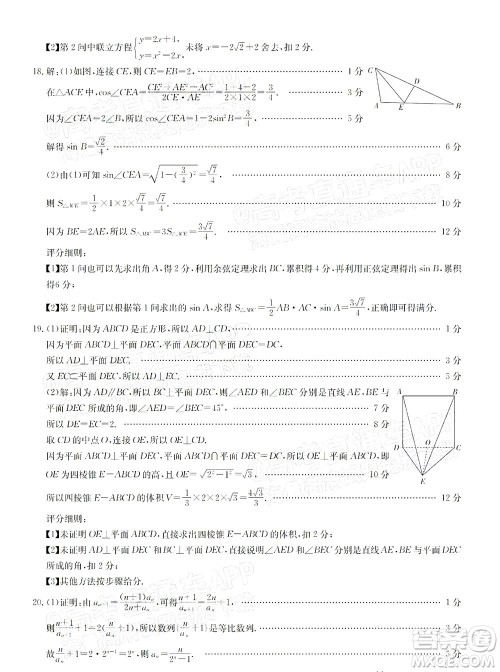 【2】第 2 问中联立方程{y=2x+4, y=x²-2x, 未将 x=-2√2+2舍去,扣 2 分.
18.解:(1)如图,连接 CE,则 CE=EB=2, 1 分
在△ACE 中,cos∠CEA=(CE²+AE²-AC²)/(2CE·AE)=(1+4-1)/(2×1×2)=3/4. 2 分
因为∠CEA=2∠B,所以 cos∠CEA=1-2sin²B=3/4, 4 分
解得 sin B=√2/4. 6 分
(2)由(1)可知 sin∠CEA=√(1-(3/4)²)=√7/4, 8 分
则 S△ACE=1/2×1×2×√7/4=√7/4. 10 分
因为 BE=2AE,所以 S△ABC=3S△ACE=3√7/4. 12 分
评分细则:
【1】第 1 问也可以先求出角 A,得 2 分,再利用余弦定理求出 BC,累积 4 分,再利用正弦定理,累积
得6 分;
【2】第 2 问也可以根据第 1 问求出 sin A,则 S△ABC=1/2 AB·AC·sin A=3√7/4.
19.(1)证明:因为 ABCD 是正方形,所以 AD⊥DC. 1 分
因为平面 ABCD⊥平面 DEC,平面 ABCD∩平面 DEC=DC, 3 分
所以 AD⊥平面 DEC. 4 分
又 EC⊂平面 DEC,所以 AD⊥EC. 5 分
(2)解:因为 AD∥BC,AD⊥平面 DEC,所以∠AED 和∠BEC 分别是直线 AE,直线 BE 与
平面 DEC 所成的角,即∠AED=∠BEC=45°, 7 分
所以 DE=EC=2. 8 分
取 CD 的中点 O,连接 OE,所以 OE⊥CD.
因为平面 ABCD⊥平面 DEC,平面 ABCD∩平面 DEC=DC,所以 OE⊥平面 ABCD,
OE 为四棱锥 E-ABCD 的高,OE=√(2²-1²)=√3. 11 分
所以四棱锥 E-ABCD 的体积 V=1/3×2×2×√3=4√3/3. 12 分
评分细则:
【1】未证明 OE⊥平面 ABCD,直接求出四棱锥 E-ABCD 的体积,扣 1 分;
【2】未证明 AD⊥平面 DEC,直接得到∠AED=∠BEC=45°,扣 1 分;
【3】其他方法按步骤给分.
20.(1)证明:由 aₙ₊₁=(n+1)aₙ/(2n+aₙ),可得(n+1)/aₙ₊₁=(2n+aₙ)/aₙ=2n/aₙ+1, 1 分
则(n+1)/aₙ₊₁+1=2(n/aₙ+1),所以数列{n/aₙ+1}是等比数列. 4 分
故 n/aₙ+1=2×2ⁿ⁻¹=2ⁿ, 5 分